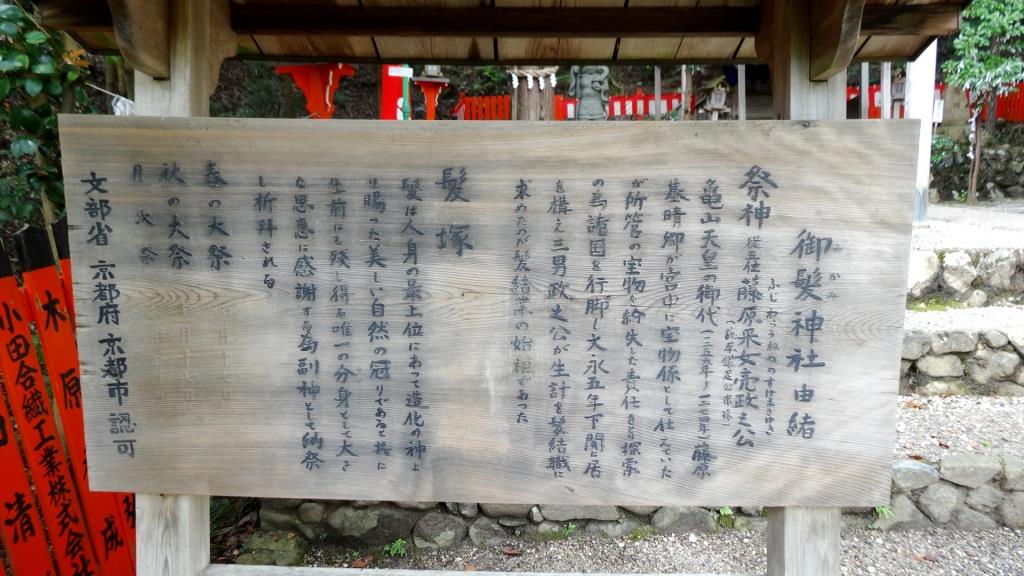 御髪神社由緒
み かみ
祭神 従三位藤原采女亮政之公
亀山天皇の御代(一二五九年～一二七四年)藤原
基晴卿が宮中に宝物係として仕えていた
が所管の宝物を紛失した責任をとり探索
の為諸国を行脚し文永五年下関に居
を構え三男政之公が生計を髪結職に
求めたのが髪結業の始祖であった
髪塚
髪は人身の最上位にあって造化の神よ
り賜った美しい自然の冠りであると共に
生前にも残し得る唯一の分身として大き
な恩恵に感謝する為副神として納祭
し祈拝される
春の大祭
秋の大祭
月次祭
文部省 京都府 京都市 認可
木原
小田合繊工業株式会社
清
成